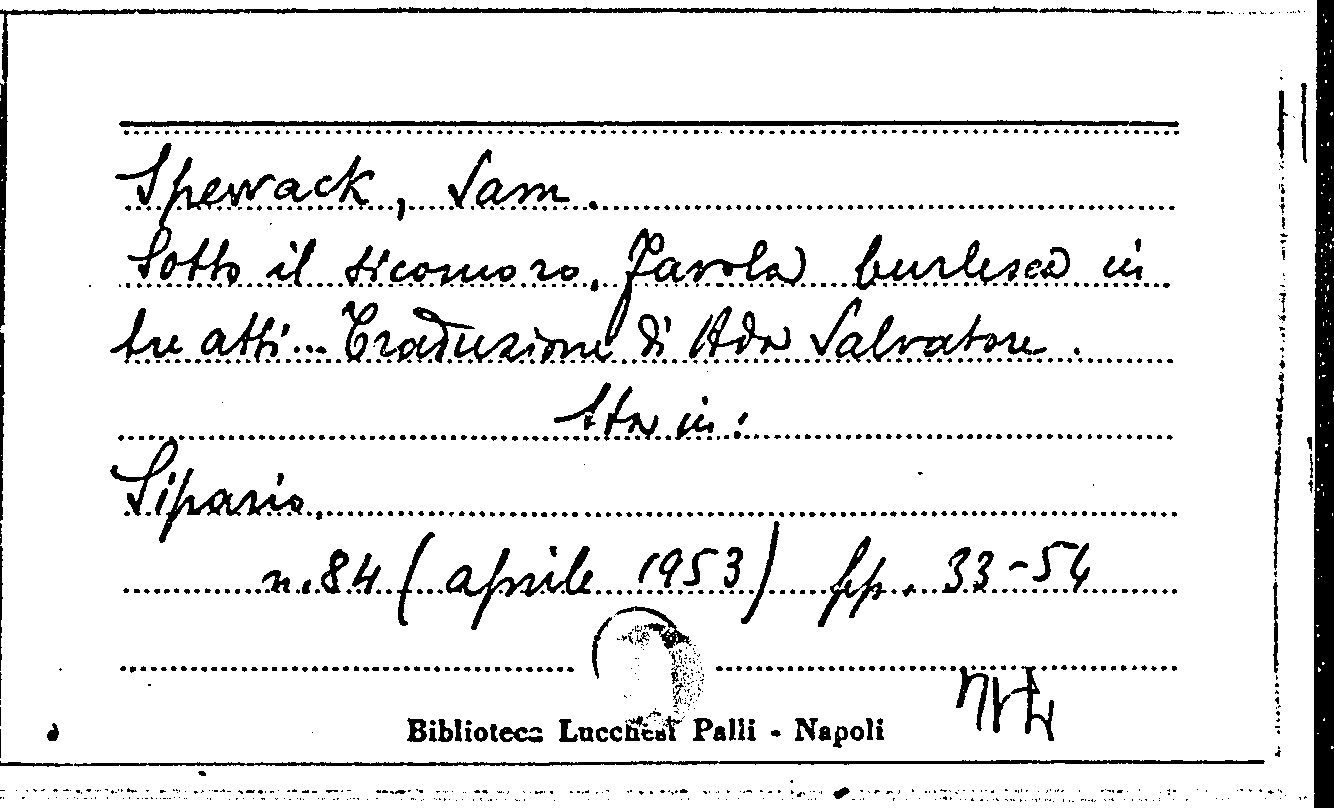 Spewack, Sam.
Sotto il sicomoro. Favola burlesca in
tre atti... Traduzione di Ada Salvatore.
Sta in:
Sipario.
n. 84 (aprile 1953) pp. 33-54
Biblioteca Lucchesi Palli - Napoli